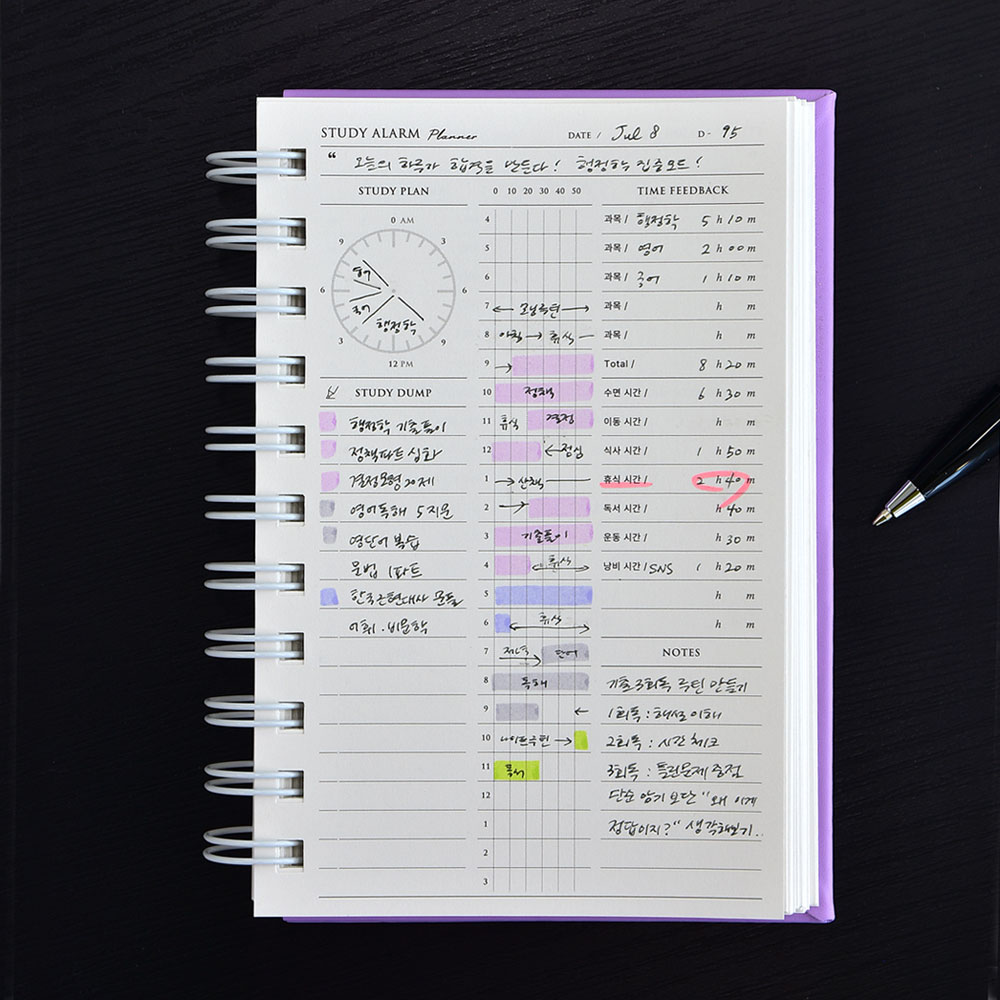 STUDY ALARM Planner
DATE / Jul 8 D- 95
“ 오늘의 하루가 합격을 만든다! 행정학 집중모드!
STUDY PLAN
0 AM
9 3
6 6
3 9
12 PM
영어
국어
행정학
STUDY DUMP
행정학 기출풀이
정책파트 심화
결정모형 20제
영어독해 5지문
영단어 복습
문법 1파트
한국근현대사 문풀
어휘·비문학
0 10 20 30 40 50
4
5
6
7 ← 모닝루틴 →
8 아침 → 휴식 —
9 →
10 정책
11 휴식 결정
12 ← 점심
1 → 산책
2 →
3 기출풀이
4 휴식
5
6 휴식
7 저녁 단어
8 독해
9 ←
10 나이트루틴 →
11 독서
12
1
2
3
TIME FEEDBACK
과목 / 행정학 5 h 10 m
과목 / 영어 2 h 00 m
과목 / 국어 1 h 10 m
과목 / h m
과목 / h m
Total / 8 h 20 m
수면 시간 / 6 h 30 m
이동 시간 / h m
식사 시간 / 1 h 50 m
휴식 시간 / 2 h 40 m
독서 시간 / h 40 m
운동 시간 / h 30 m
낭비 시간 / SNS 1 h 20 m
h m
h m
NOTES
기출 3회독 루틴 만들기
1회독 : 해설 이해
2회독 : 시간 체크
3회독 : 틀린문제 중점
단순 암기 보단 “왜 이게
정답이지?” 생각해보기..